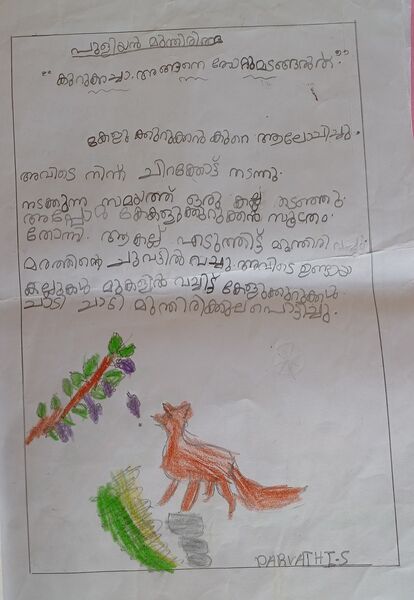 പുളിയൻ മുന്തിരിങ്ങ
"കുറുക്കച്ചാ. അങ്ങനെ തോറ്റുമടങ്ങരുത്."
കേളു ക്കുറുക്കൻ കുറെ ആലോചിച്ചു.
അവിടെ നിന്ന് ചിറക്കോട്ട് നടന്നു.
നടക്കുന്ന സമയത്ത് ഒരു കല്ല് തടഞ്ഞു.
അപ്പോൾ കേളുക്കുറുക്കന് സൂത്രം
തോന്നി. ആ കല്ല് എടുത്തിട്ട് മുന്തിരി
മരത്തിന്റെ ചുവടിൽ വച്ചു. അവിടെ ഉണ്ടായ
കല്ലുകൾ മുകളിൽ വച്ചിട്ട് കേളുക്കുറുക്കൻ
ചാടി ചാടി മുന്തിരിക്കുല പൊട്ടിച്ചു.
PARVATHI.S